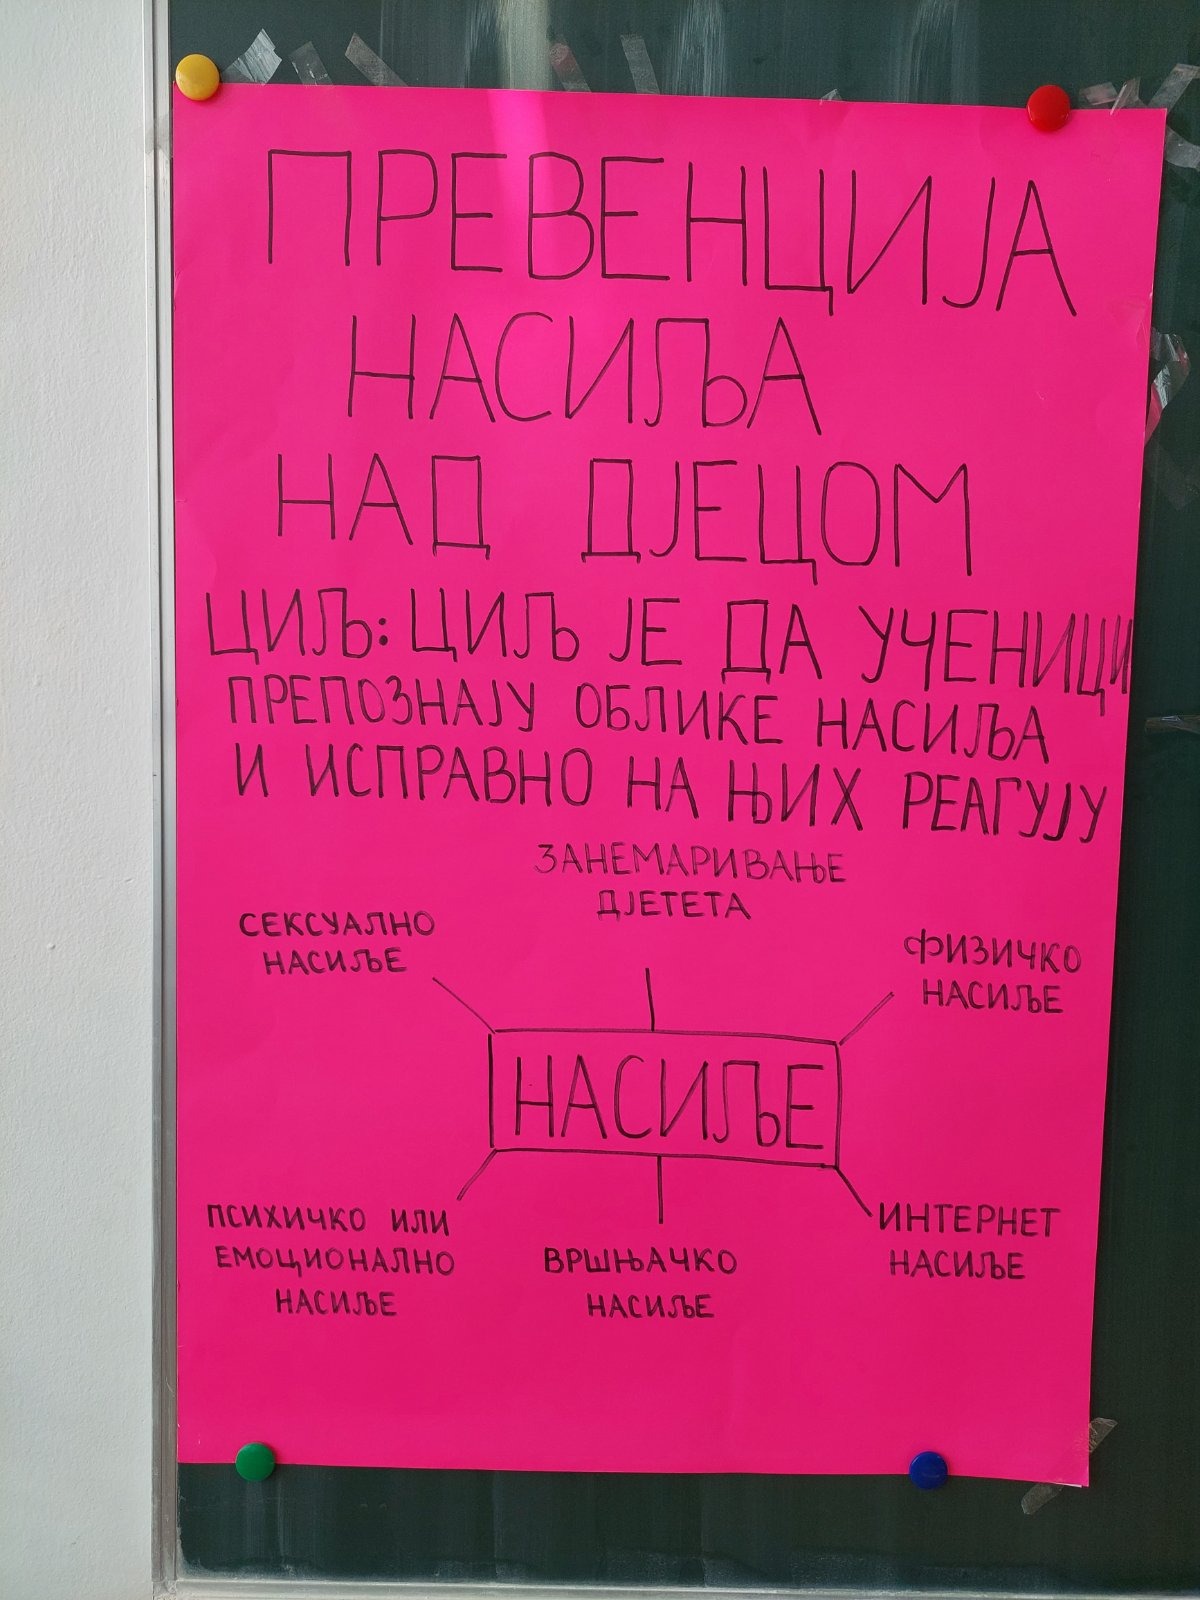 ПРЕВЕНЦИЈА
НАСИЉА
НАД ДЈЕЦОМ
ЦИЉ: ЦИЉ ЈЕ ДА УЧЕНИЦИ
ПРЕПОЗНАЈУ ОБЛИКЕ НАСИЉА
И ИСПРАВНО НА ЊИХ РЕАГУЈУ
ЗАНЕМАРИВАЊЕ
ДЈЕТЕТА
СЕКСУАЛНО
НАСИЉЕ
ФИЗИЧКО
НАСИЉЕ
НАСИЉЕ
ПСИХИЧКО ИЛИ
ЕМОЦИОНАЛНО
НАСИЉЕ
ВРШЊАЧКО
НАСИЉЕ
ИНТЕРНЕТ
НАСИЉЕ